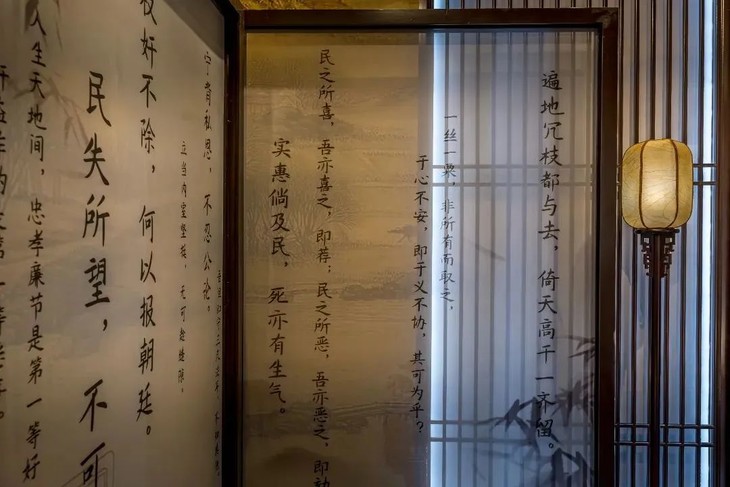 遍地冗枝都与去，倚天高干一齐留。
一丝一粟，非所有而取之，
于心不安，即于义不协，其可为乎？
民之所喜，吾亦喜之，即荐；民之所恶，吾亦恶之，即劾
实惠倘及民，死亦有生气。
宁背私恩，不忍公论。
奸不除，何以报朝廷。
民失所望，不可
人生天地间，忠孝廉节是第一等好